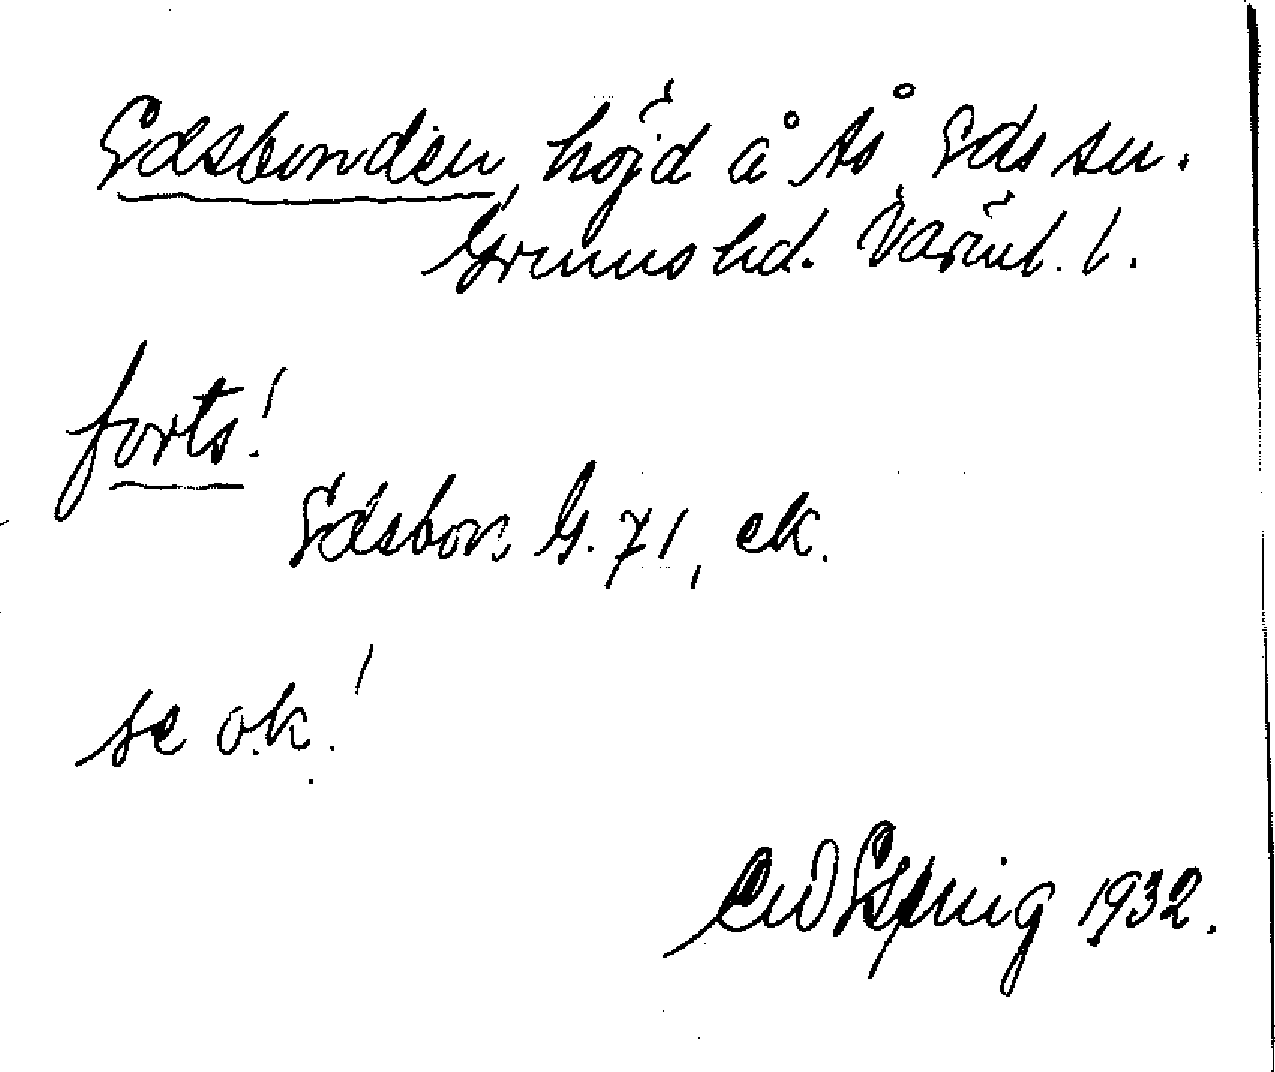 Edsbonden, höjd å Ås Eds sn.
Grums hd. Värml. l.
forts!
Edsbon G. 71, ek.
se o.k.!
1932.